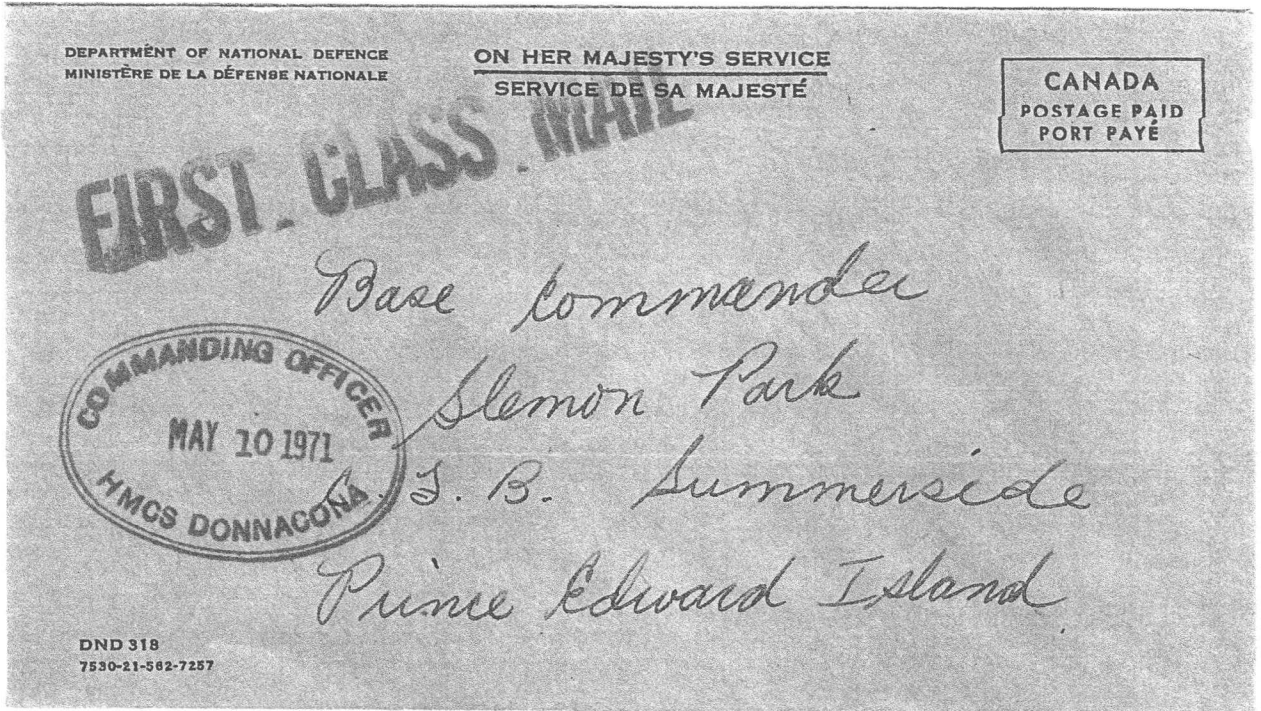 DEPARTMENT OF NATIONAL DEFENCE
MINISTÈRE DE LA DÉFENSE NATIONALE
ON HER MAJESTY'S SERVICE
SERVICE DE SA MAJESTÉ
CANADA
POSTAGE PAID
PORT PAYÉ
FIRST CLASS MAIL
Base Commander
Slemon Park
C. F. B. Summerside
Prince Edward Island
COMMANDING OFFICER
MAY 10 1971
HMCS DONNACONA
DND 318
7530-21-562-7257